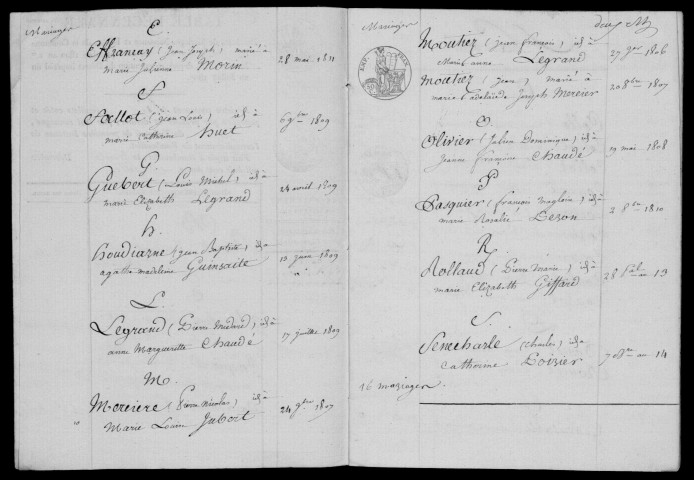 Mariages
E.
Effrancey (Jean Joseph) marié à
Marie Julienne Morin 28 mai 1811
F
Fallot (Jean Louis) id à
marie Catherine huet 6 9bre 1809
G
Guebert (Louis Michel) id à
marie Elizabeth Legrand 24 avril 1809
h.
houdiarne (jean Baptiste) id à
agathe madeleine 13 juin 1809
L.
Legrand (Pierre Médard) id à
anne Marguerite Chaudé 17 juillet 1809
M.
Merciere (Pierre Nicolas) id à
Marie Louise Jubert 24 9bre 1807
Mariages
Moutiez (jean françois) id à
Marie anne Legrand 27 1806
Moutiez (Jean) marié à
marie adelaide Joseph Mercier 20 8bre 1807
O
Olivier (Julien Dominique) id à
Jeanne Françoise Chaudé 19 mai 1808
P
Pasquier (françois magloire) id à
marie Rosalie Lezon 2 8bre 1810
R
Rolland (Pierre Marie) id à
marie Elizabeth Giffard 28 an 13
S.
Senecharle (Charles) id à
Catherine Loisier 7 an 14
16 mariages.